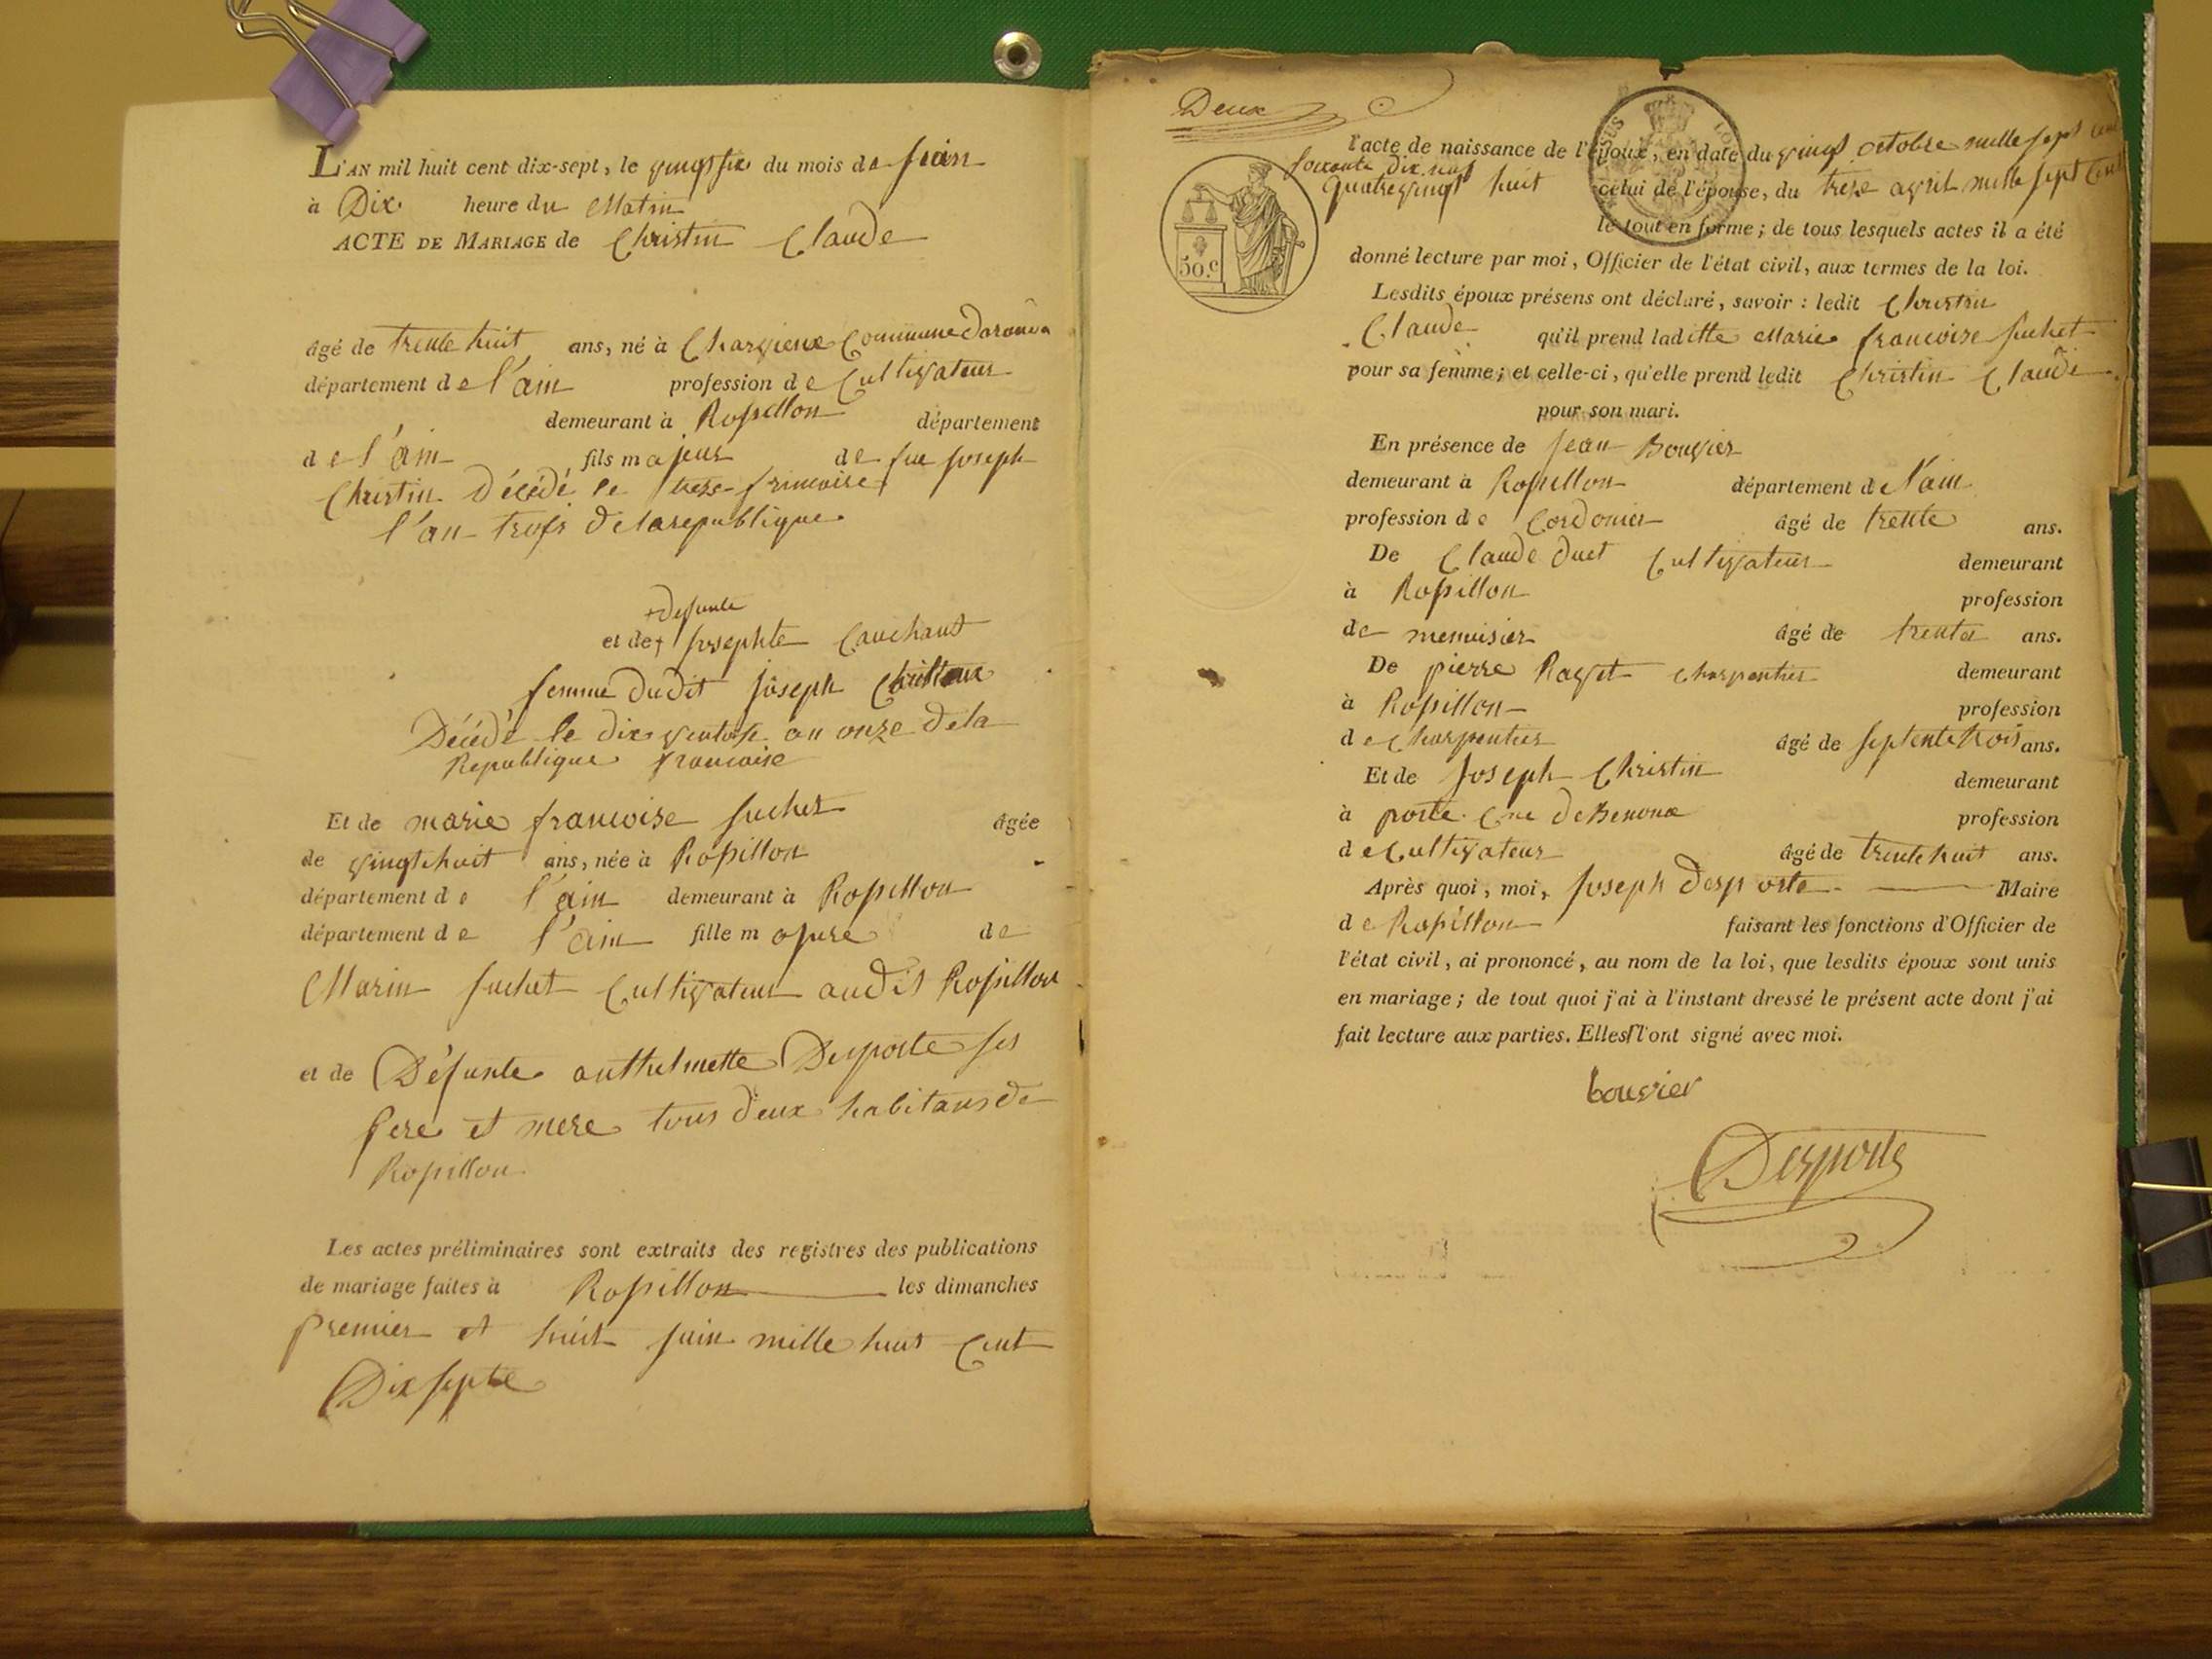 L'AN mil huit cent dix-sept, le vingt six du mois de Juin
à Dix heure du Matin
ACTE DE MARIAGE de Christin Claude
âgé de trente huit ans, né à Charvieux Commune
département de l'ain profession de Cultivateur
demeurant à Rossillon département
de l'ain fils majeur de feu Joseph
Christin Décédé le treze frimaire
l'an trois de la republique
+ defunte
et de + Josephte Cauchant
femme dudit Joseph
Décédé le dix ventose an onze de la
Republique francoise
Et de marie francoise Juchet âgée
de vingt huit ans, née à Rossillon
département de l'ain demeurant à Rossillon
département de l'ain fille majeure de
Marin Juchet Cultivateur audit Rossillon
et de Défunte anthelmette Desporte ses
pere et mere tous deux habitans de
Rossillon
Les actes préliminaires sont extraits des registres des publications
de mariage faites à Rossillon les dimanches
premier et huit juin mille huit cent
Dix septe
Deux
l'acte de naissance de l'époux, en date du vingt octobre mille sept cent
soixante dix neuf
quatrevingt huit celui de l'épouse, du treze avril mille sept cent
le tout en forme ; de tous lesquels actes il a été
50.c
donné lecture par moi, Officier de l'état civil, aux termes de la loi.
Lesdits époux présens ont déclaré, savoir : ledit Christin
Claude qu'il prend laditte Marie francoise Juchet
pour sa femme ; et celle-ci, qu'elle prend ledit Christin Claude
pour son mari.
En présence de Jean Bouvier
demeurant à Rossillon département de l'ain
profession de Cordonier âgé de trente ans.
De Claude Duet Cultivateur demeurant
à Rossillon profession
de menuisier âgé de trente ans.
De pierre Ravet charpentier demeurant
à Rossillon profession
de charpentier âgé de septente trois ans.
Et de Joseph Christin demeurant
à porte Cne de Benonce profession
de Cultivateur âgé de trente huit ans.
Après quoi, moi, Joseph Desporte Maire
de Rossillon faisant les fonctions d'Officier de
l'état civil, ai prononcé, au nom de la loi, que lesdits époux sont unis
en mariage ; de tout quoi j'ai à l'instant dressé le présent acte dont j'ai
fait lecture aux parties. Elles l'ont signé avec moi.
bouvier
Desporte